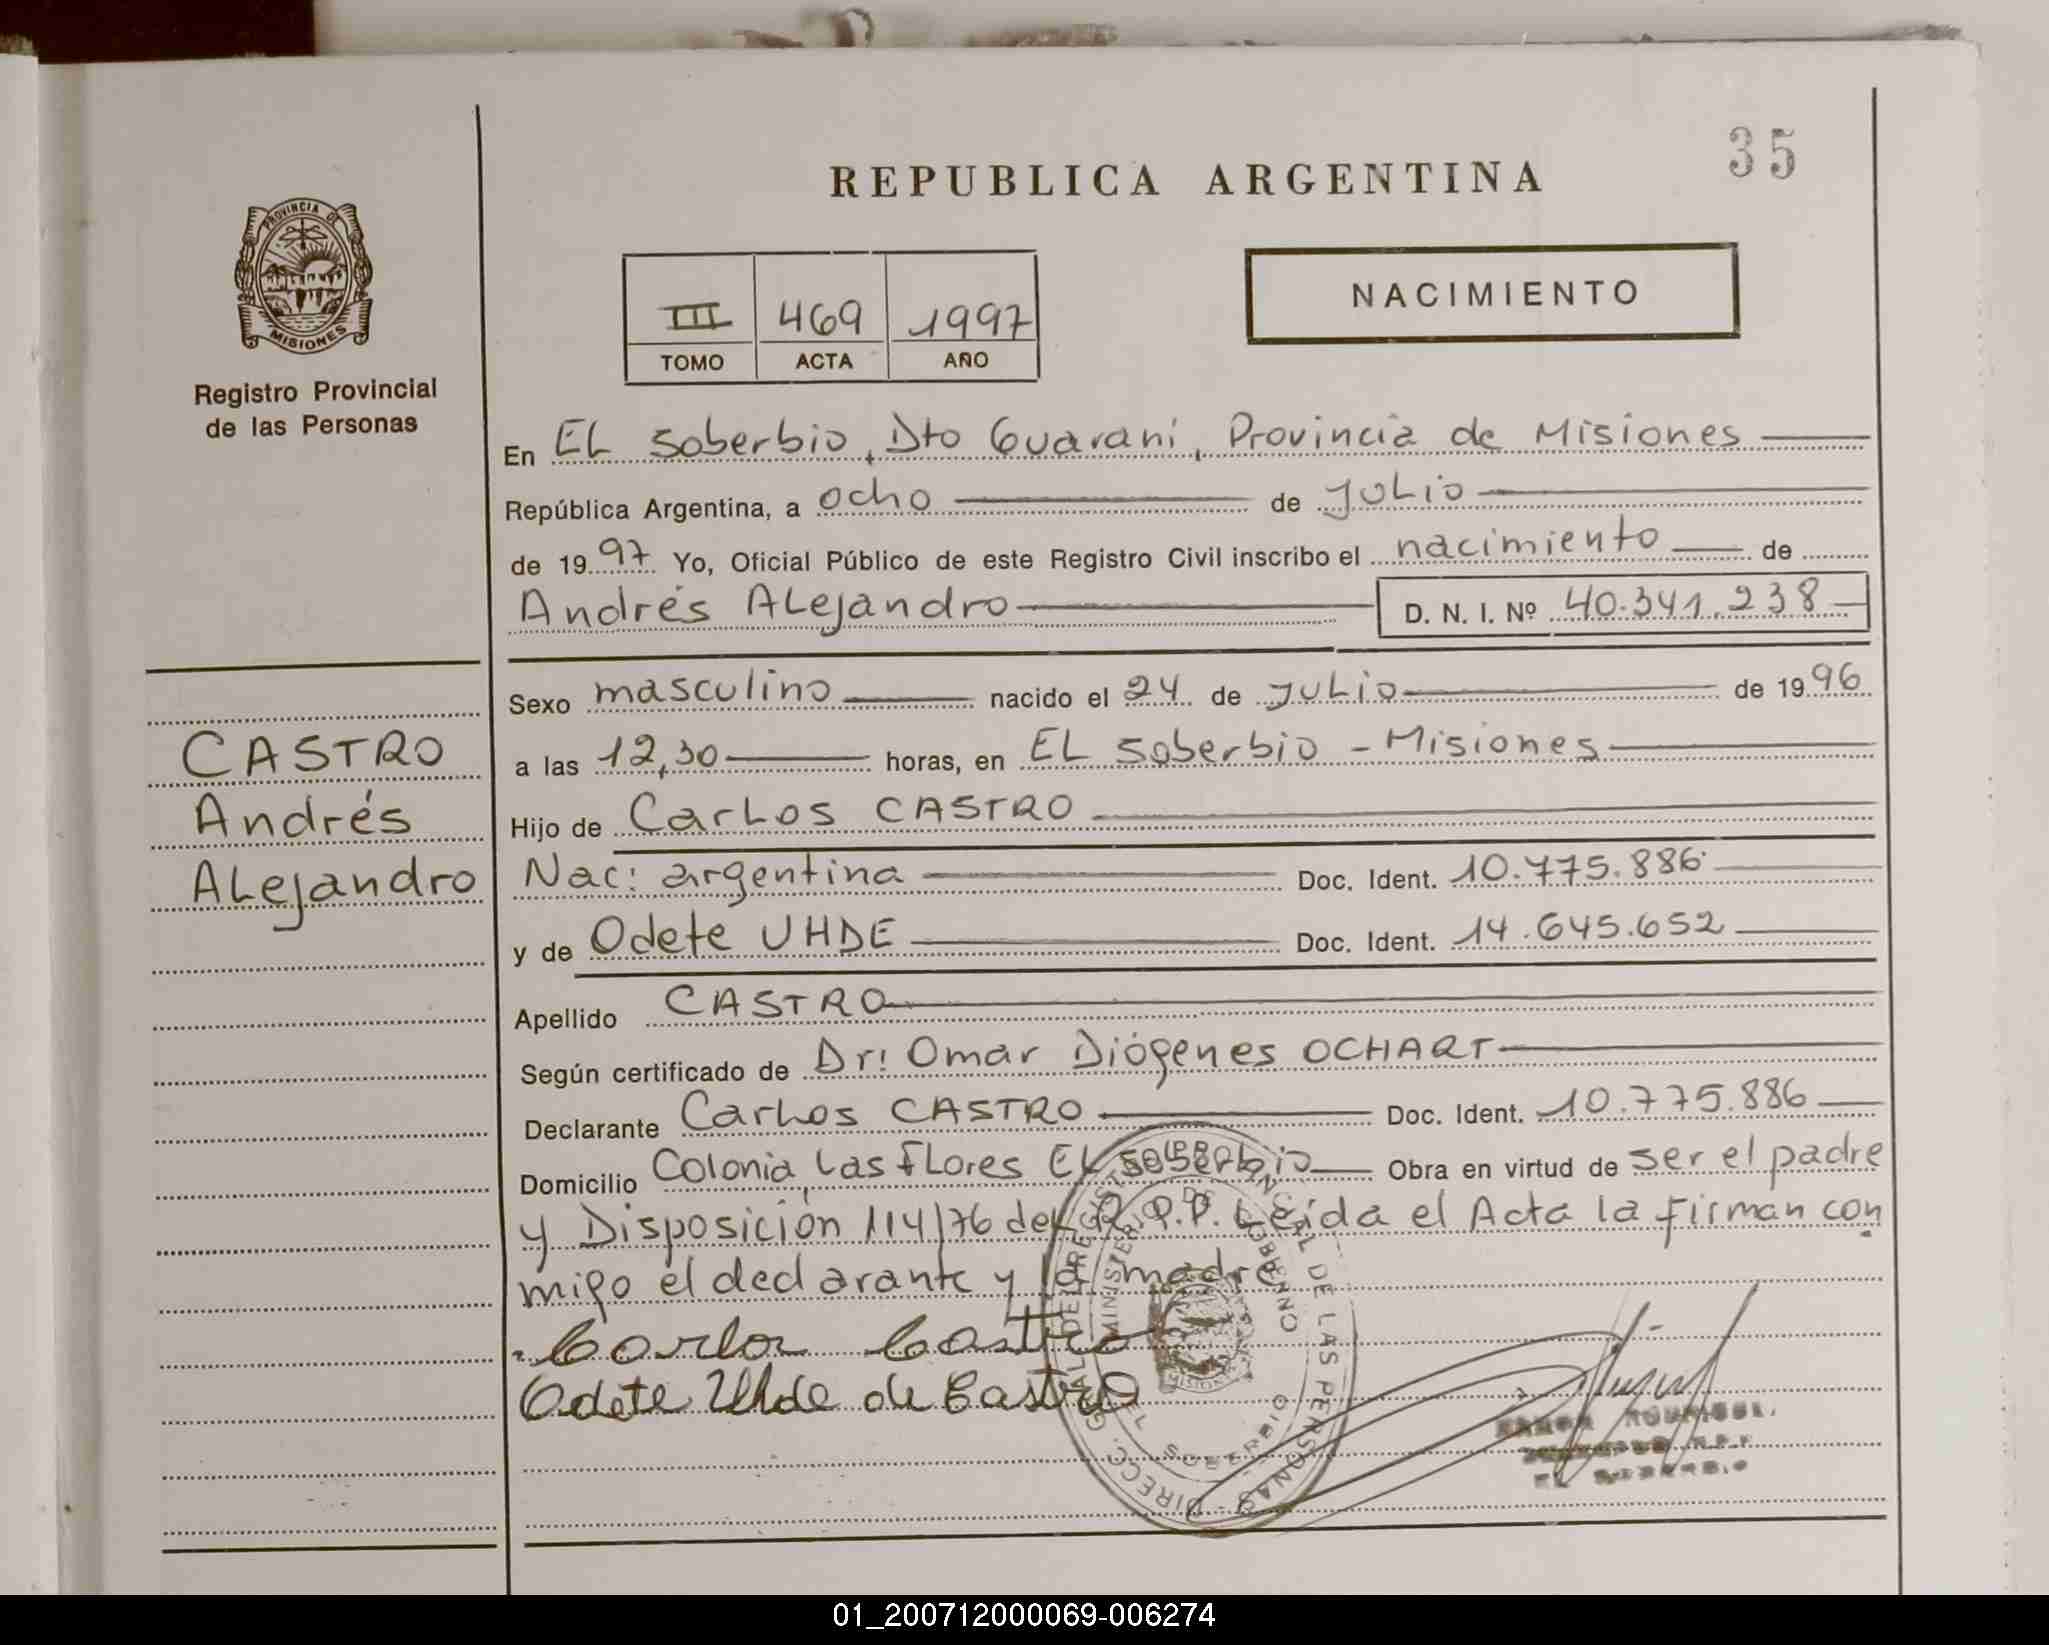 35
REPUBLICA ARGENTINA
PROVINCIA DE
MISIONES
Registro Provincial
de las Personas
III 469 1997
TOMO ACTA AÑO
NACIMIENTO
En EL Soberbio, Dto Guaraní, Provincia de Misiones
República Argentina, a ocho de julio
de 1997 Yo, Oficial Público de este Registro Civil inscribo el nacimiento de
Andrés Alejandro D. N. I. Nº 40.341.238
Sexo masculino nacido el 24 de julio de 1996
a las 12,30 horas, en EL Soberbio - Misiones
Hijo de Carlos CASTRO
Nac: argentina Doc. Ident. 10.775.886
y de Odete UHDE Doc. Ident. 14.645.652
Apellido CASTRO
Según certificado de Dr: Omar Diógenes OCHART
Declarante Carlos CASTRO Doc. Ident. 10.775.886
Domicilio Colonia Las Flores EL Soberbio Obra en virtud de ser el padre
y Disposición 114/76 del R.P.P. Leída el Acta la firman con
migo el declarante y la madre
Carlos Castro
Odete Uhde de Castro
CASTRO
Andrés
Alejandro
DIRECC. GRAL. DEL REGISTRO PROVINCIAL DE LAS PERSONAS
MINISTERIO DE GOBIERNO
MISIONES
EL SOBERBIO
EL SOBERBIO
01_200712000069-006274